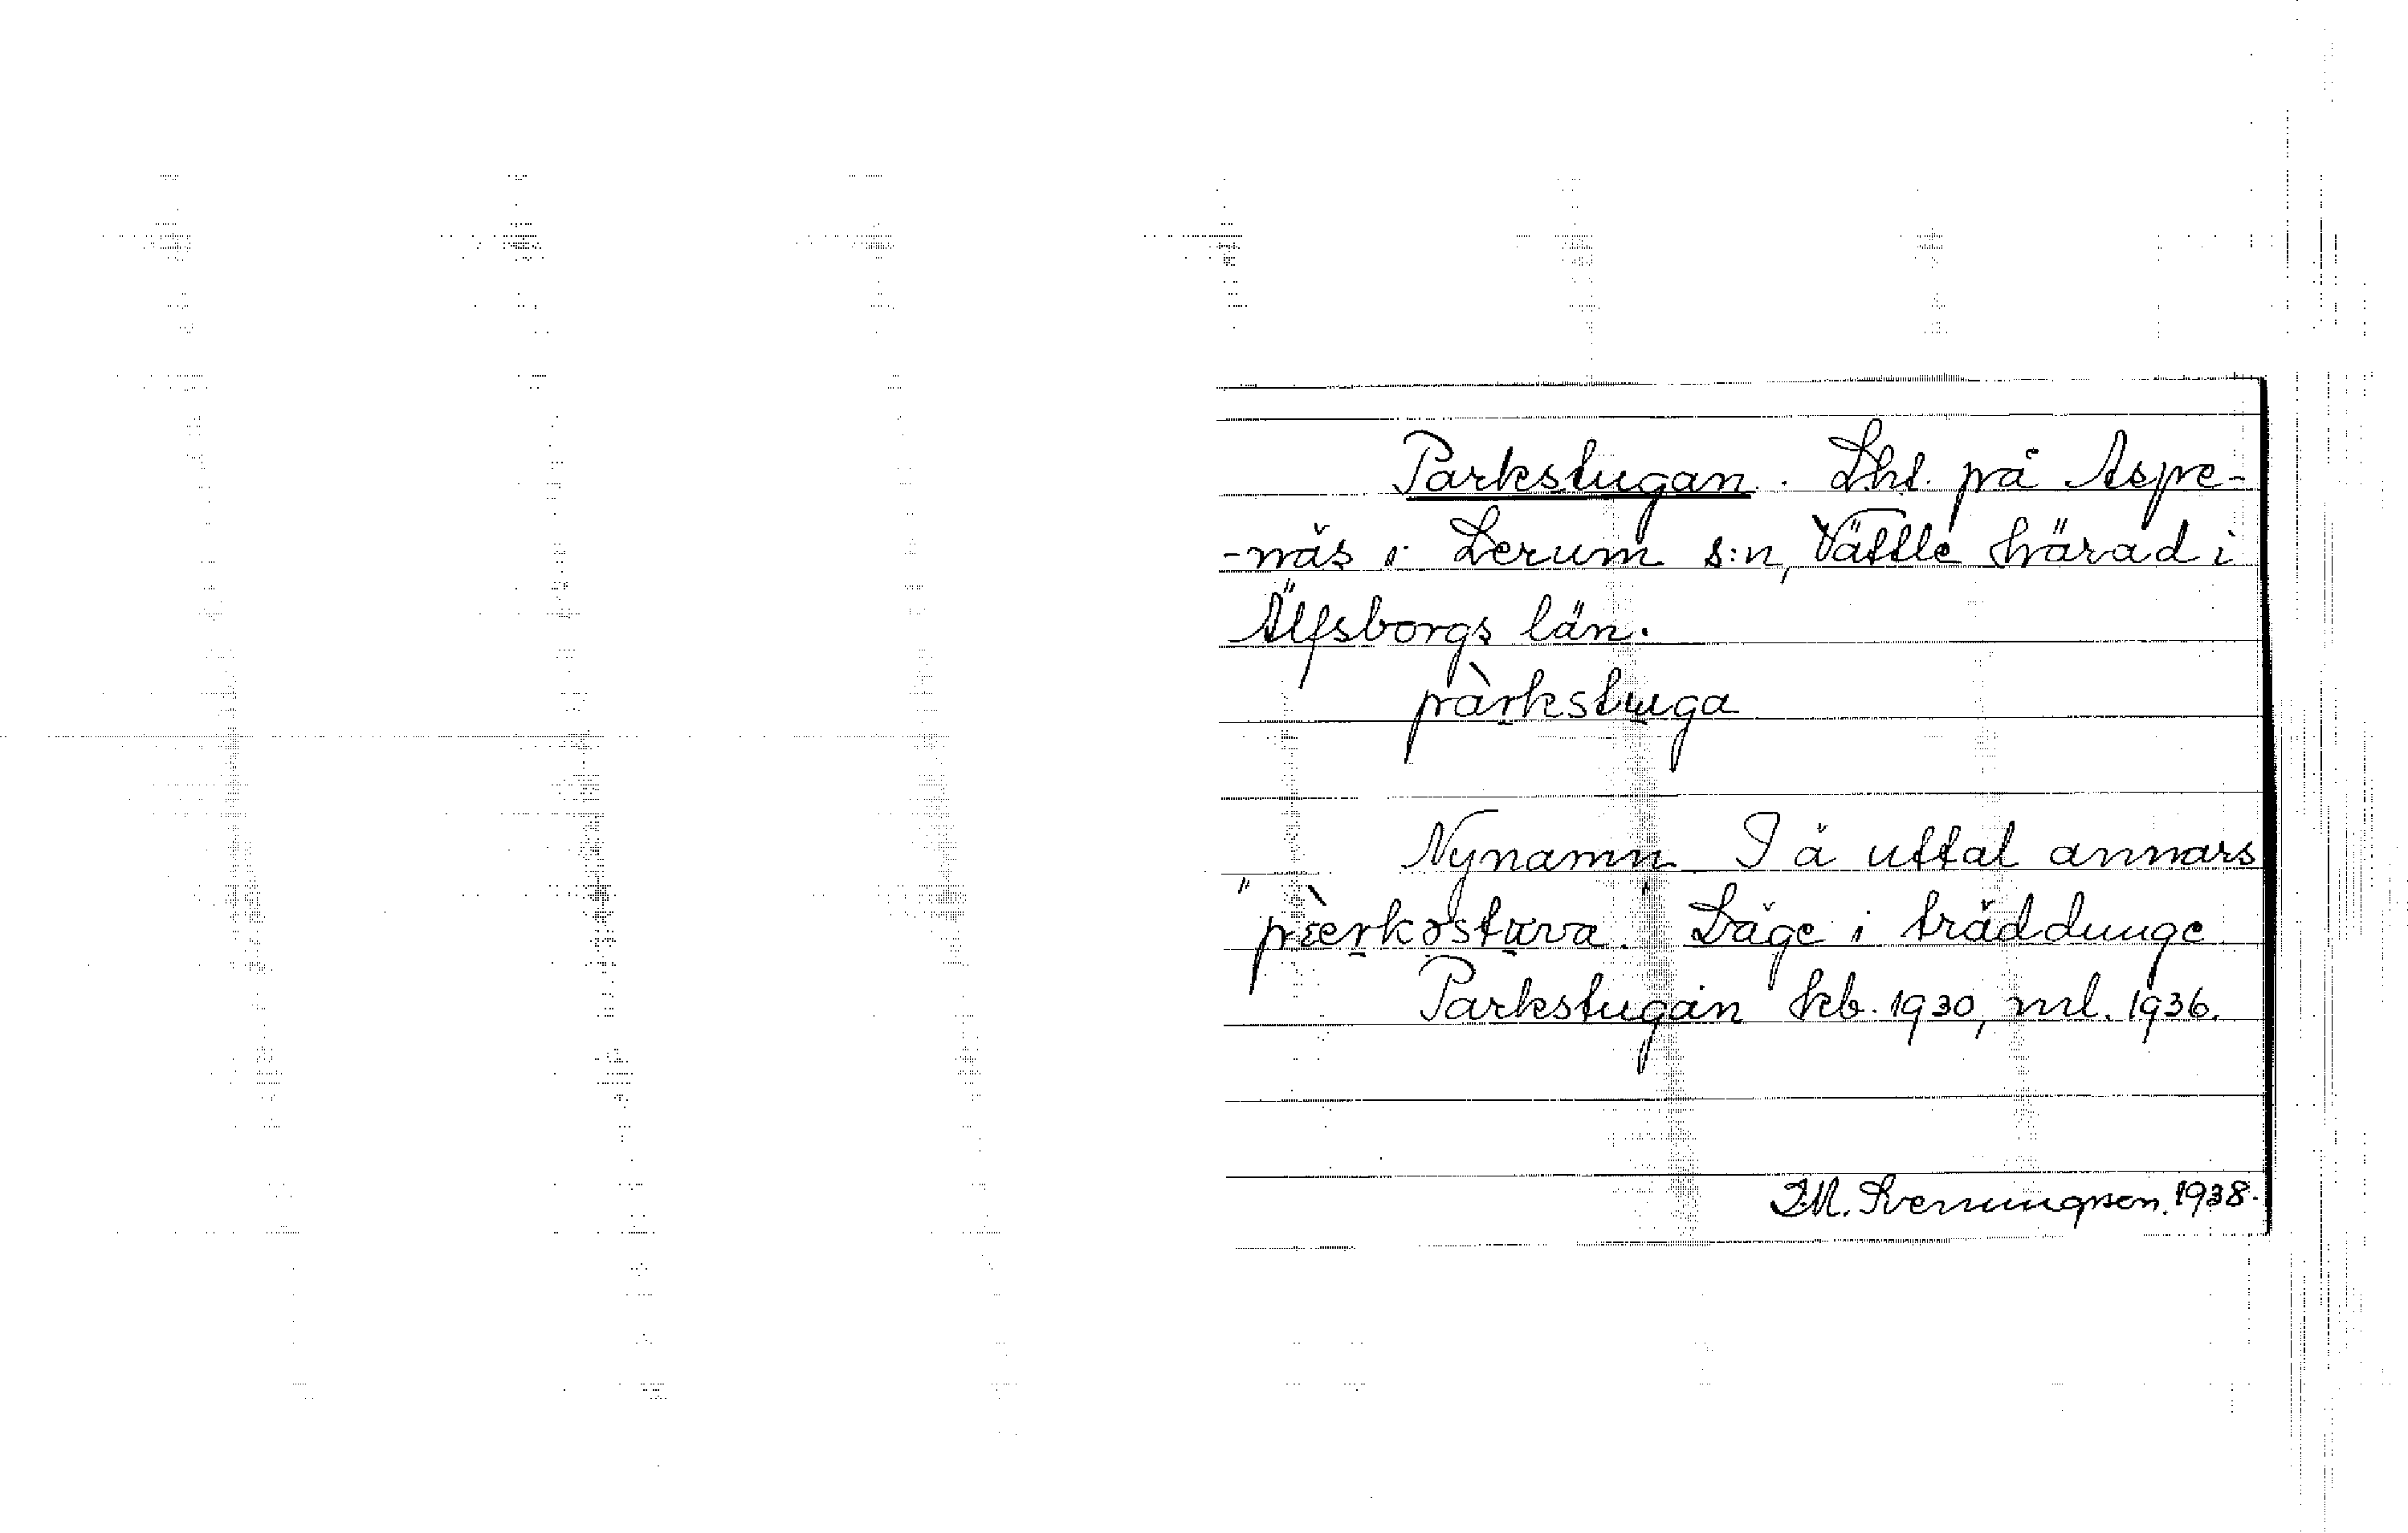 Parkstugan. Lht. på Aspe-
-näs i Lerum s:n, Vättle härad i
Älfsborgs län.
pàrkstuga
Nynamn I ä uttal annars
"pærkəstuva." Läge i träddunge
Parkstugan kb. 1930, ml. 1936.
1938.